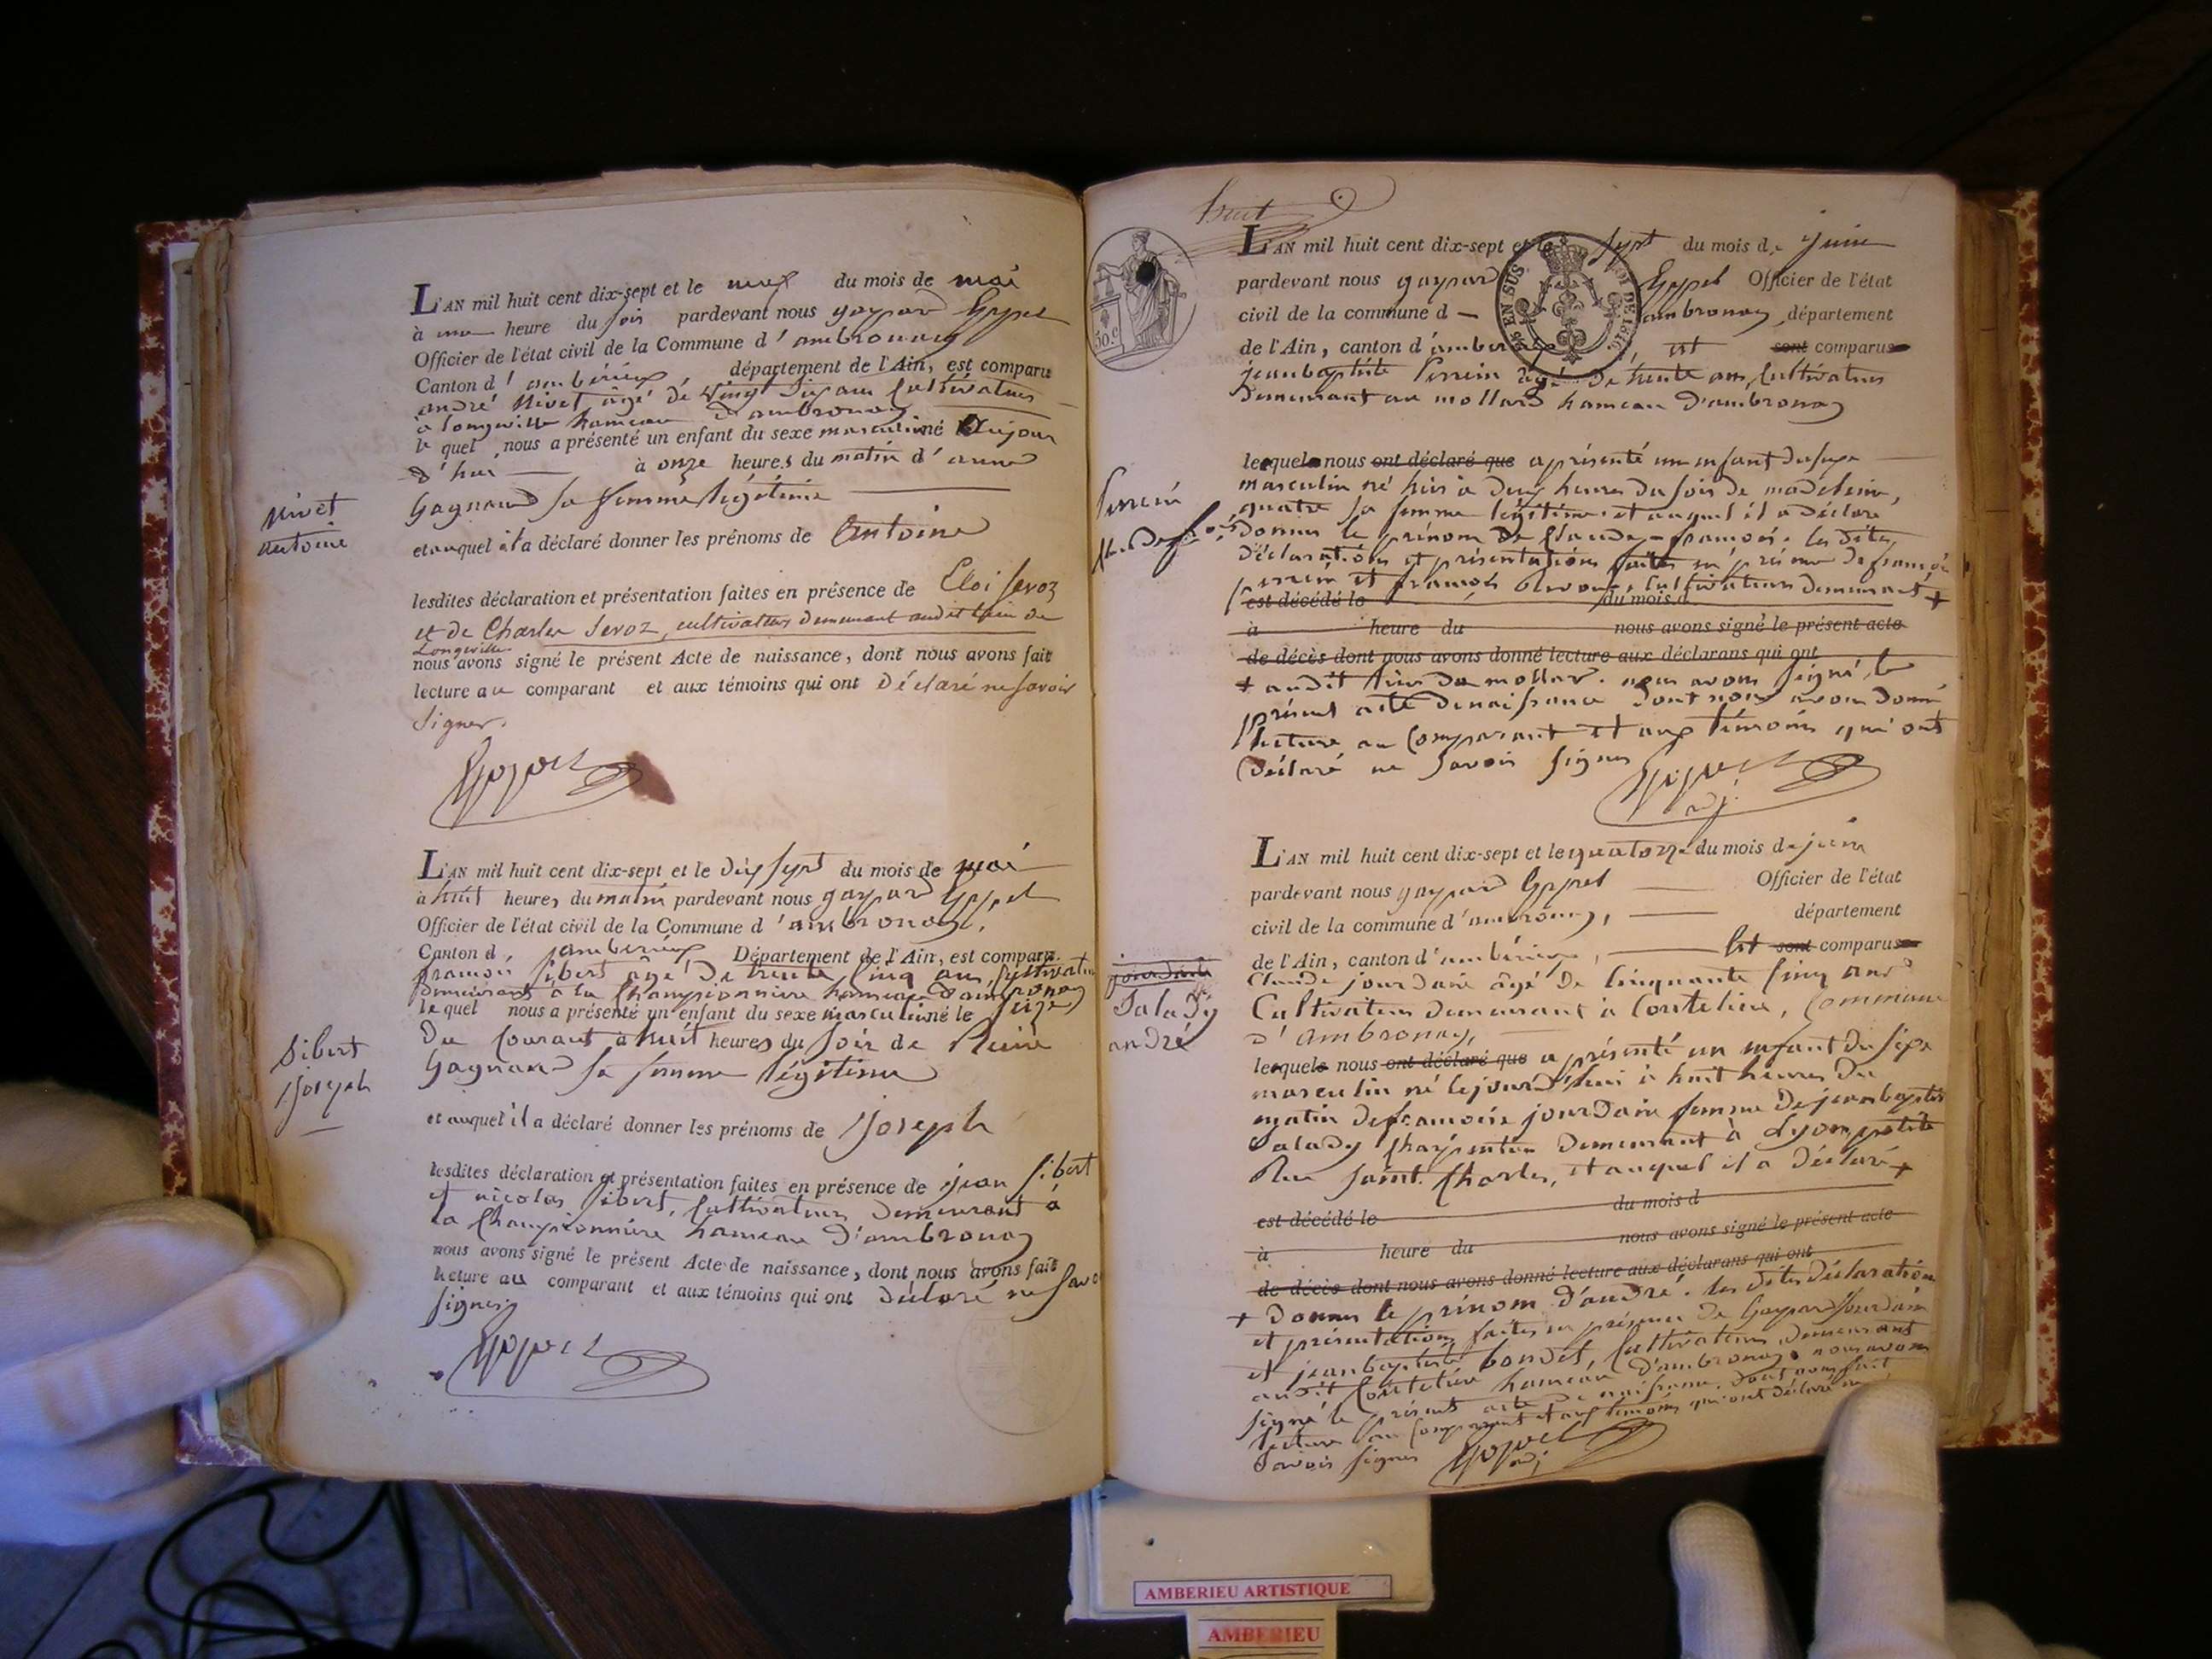 L'AN mil huit cent dix-sept et le neuf du mois de mai
à une heure du soir pardevant nous gaspard Eppel
Officier de l'état civil de la Commune d'ambronay
Canton d'ambérieux, département de l'Ain, est comparu
andré Nivet âgé de vingt six ans Cultivateur
à longeville hameau d'ambronay
le quel nous a présenté un enfant du sexe masculin né Aujour
d'hui à onze heures du matin d'anne
Gagnand sa femme légitime
Nivet
antoine
et auquel il a déclaré donner les prénoms de Antoine
lesdites déclaration et présentation faites en présence de Eloi Sevoz
et de Charles Sevoz, cultivateurs demeurant audit lieu de
Longeville
nous avons signé le présent Acte de naissance, dont nous avons fait
lecture au comparant et aux témoins qui ont Déclaré ne savoir
signer.
L'AN mil huit cent dix-sept et le dix sept du mois de mai
à huit heures du matin pardevant nous gaspard Eppel
Officier de l'état civil de la Commune d'ambronay,
Canton d'ambérieux Département de l'Ain, est comparu
françois Sibert âgé de trente cinq ans Cultivateur
demeurant à la Championnière hameau d'ambronay
le quel nous a présenté un enfant du sexe masculin né le seize
du Courant à huit heures du soir de Reine
Gagnand sa femme légitime
Sibert
Joseph
et auquel il a déclaré donner les prénoms de Joseph
lesdites déclaration et présentation faites en présence de jean Sibert
et nicolas Sibert, Cultivateurs demeurant à
la Championnière hameau d'ambronay
nous avons signé le présent Acte de naissance, dont nous avons fait
lecture au comparant et aux témoins qui ont déclaré ne savoir
signer
huit
L'AN mil huit cent dix-sept et le Sept du mois de juin
pardevant nous gaspard Eppel Officier de l'état
civil de la commune d ambronay, département
de l'Ain, canton d'ambérieux, est sont comparus
jean baptiste Perrein âgé de trente ans, Cultivateur
Demeurant au mollard hameau d'ambronay
50 c.
EN SUS
LOI DE 1816
lesquels nous ont déclaré que a présenté un enfant du sexe
masculin né hier à deux heures du soir de madeleine,
quatre sa femme légitime et auquel il a déclaré
Perrein
Claude frois
donner le prénom de Claude-françois. les dites
déclarations et présentations faites en présence de françois
perrein et françois Cultivateurs demeurant +
est décédé le du mois d
à heure du nous avons signé le présent acte
de décès dont nous avons donné lecture aux déclarans qui ont
+ audit lieu du mollar. nous avons signé le
présent acte de naissance dont nous avons donné
lecture au Comparant et aux témoins qui ont
déclaré ne savoir signer
adj.
L'AN mil huit cent dix-sept et le quatorze du mois de juin
pardevant nous gaspard Eppel Officier de l'état
civil de la commune d'ambronay, département
de l'Ain, canton d'ambérieux, Est sont comparus
Claude jourdain âgé de Cinquante Cinq ans
Cultivateur demeurant à Coutelieu, Commune
d'ambronay,
jourdain
Salady
andré
lesquels nous ont déclaré que a présenté un enfant du sexe
masculin né lejourd'hui à huit heures du
matin de francoise jourdain femme de jean baptiste
Salady Charpentier demeurant à Lyon, petite
Rue Saint Charles, et auquel il a déclaré +
est décédé le du mois d
à heure du nous avons signé le présent acte
de décès dont nous avons donné lecture aux déclarans qui ont
+ donner le prénom d'andré. les dites déclaration
et présentations faites en présence de Gaspard jourdain
et jean baptiste bondet, Cultivateurs demeurant
audit Coutelieu hameau d'ambronay. nous avons
signé le présent acte de naissance, dont avons fait
lecture au Comparant et aux témoins qui ont déclaré ne
savoir signer
adj
AMBERIEU ARTISTIQUE
AMBERIEU